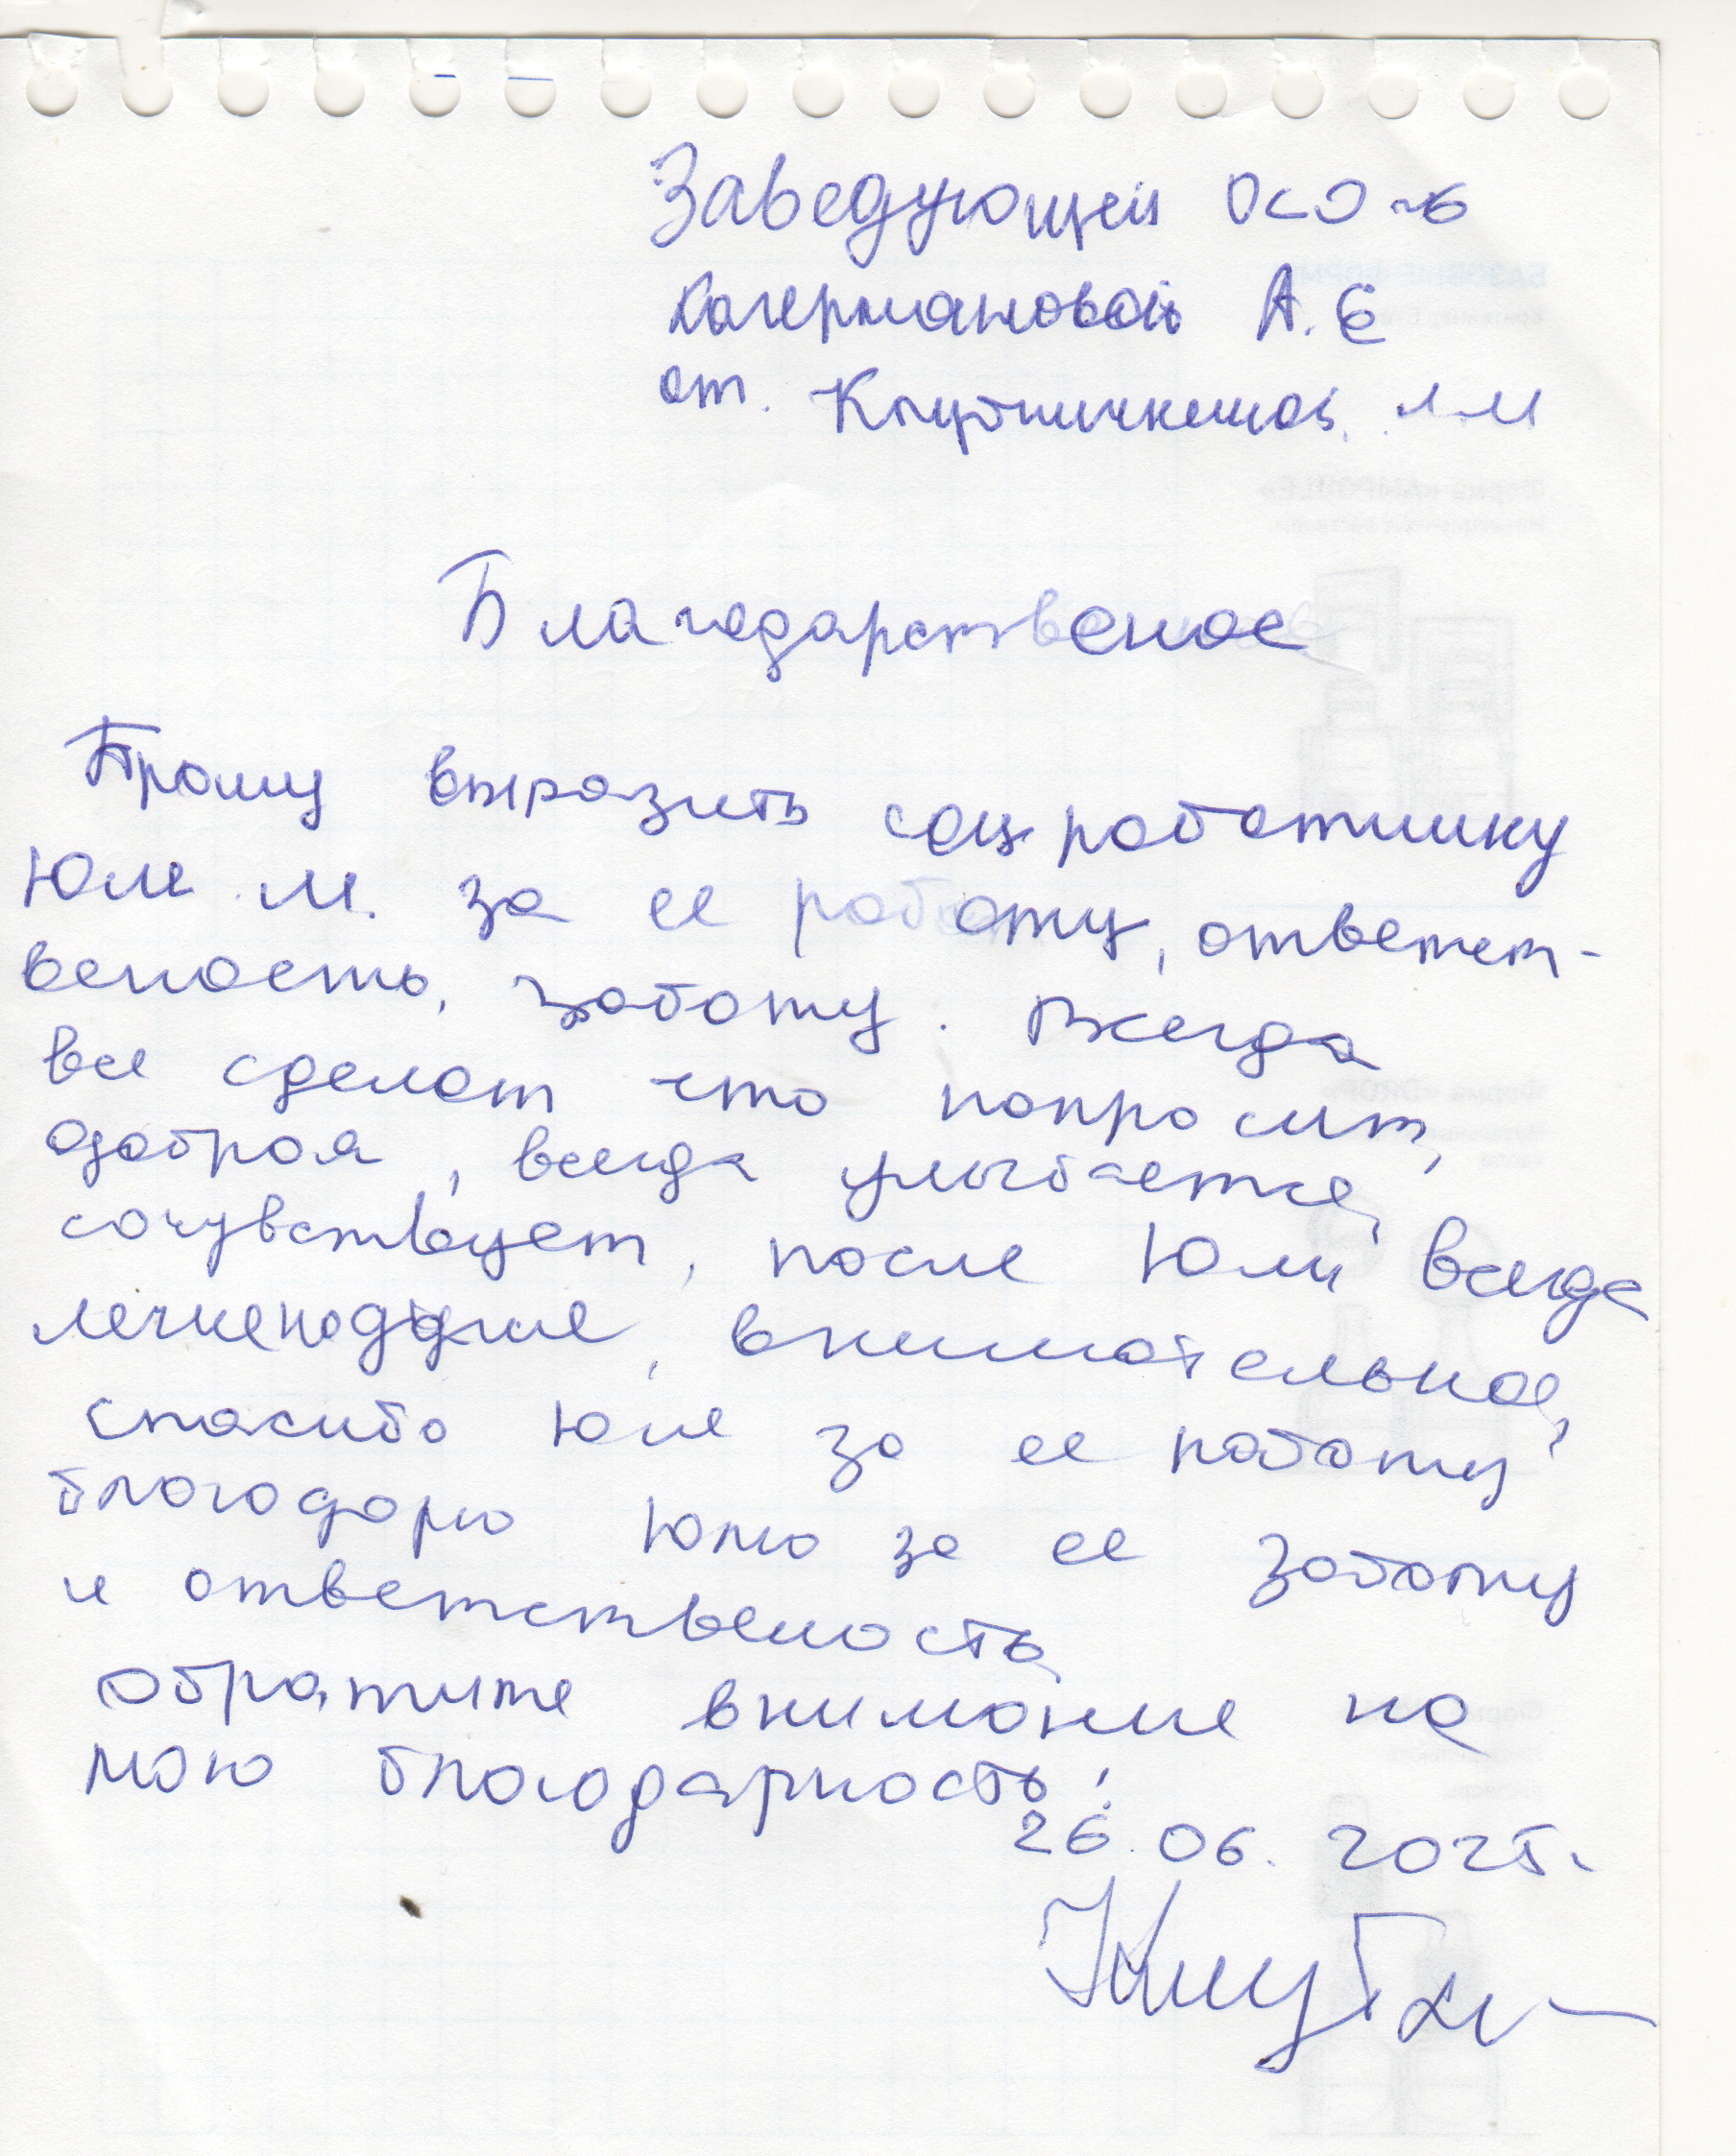 Заведующей ОСО-6
Кагермановой А. Е
от. Л.М
Благодарственое
Прошу выразить соц работнику
Юле М. за ее работу, ответст-
веность, заботу. Всегда
все сделает что попросит,
добрая, всегда улыбается,
сочувствует, после Юли всегда
внимательная,
спасибо Юле за ее работу
благодарю Юлю за ее заботу
и ответственость
обратите внимание на
мою благодарность!
26.06.2025.